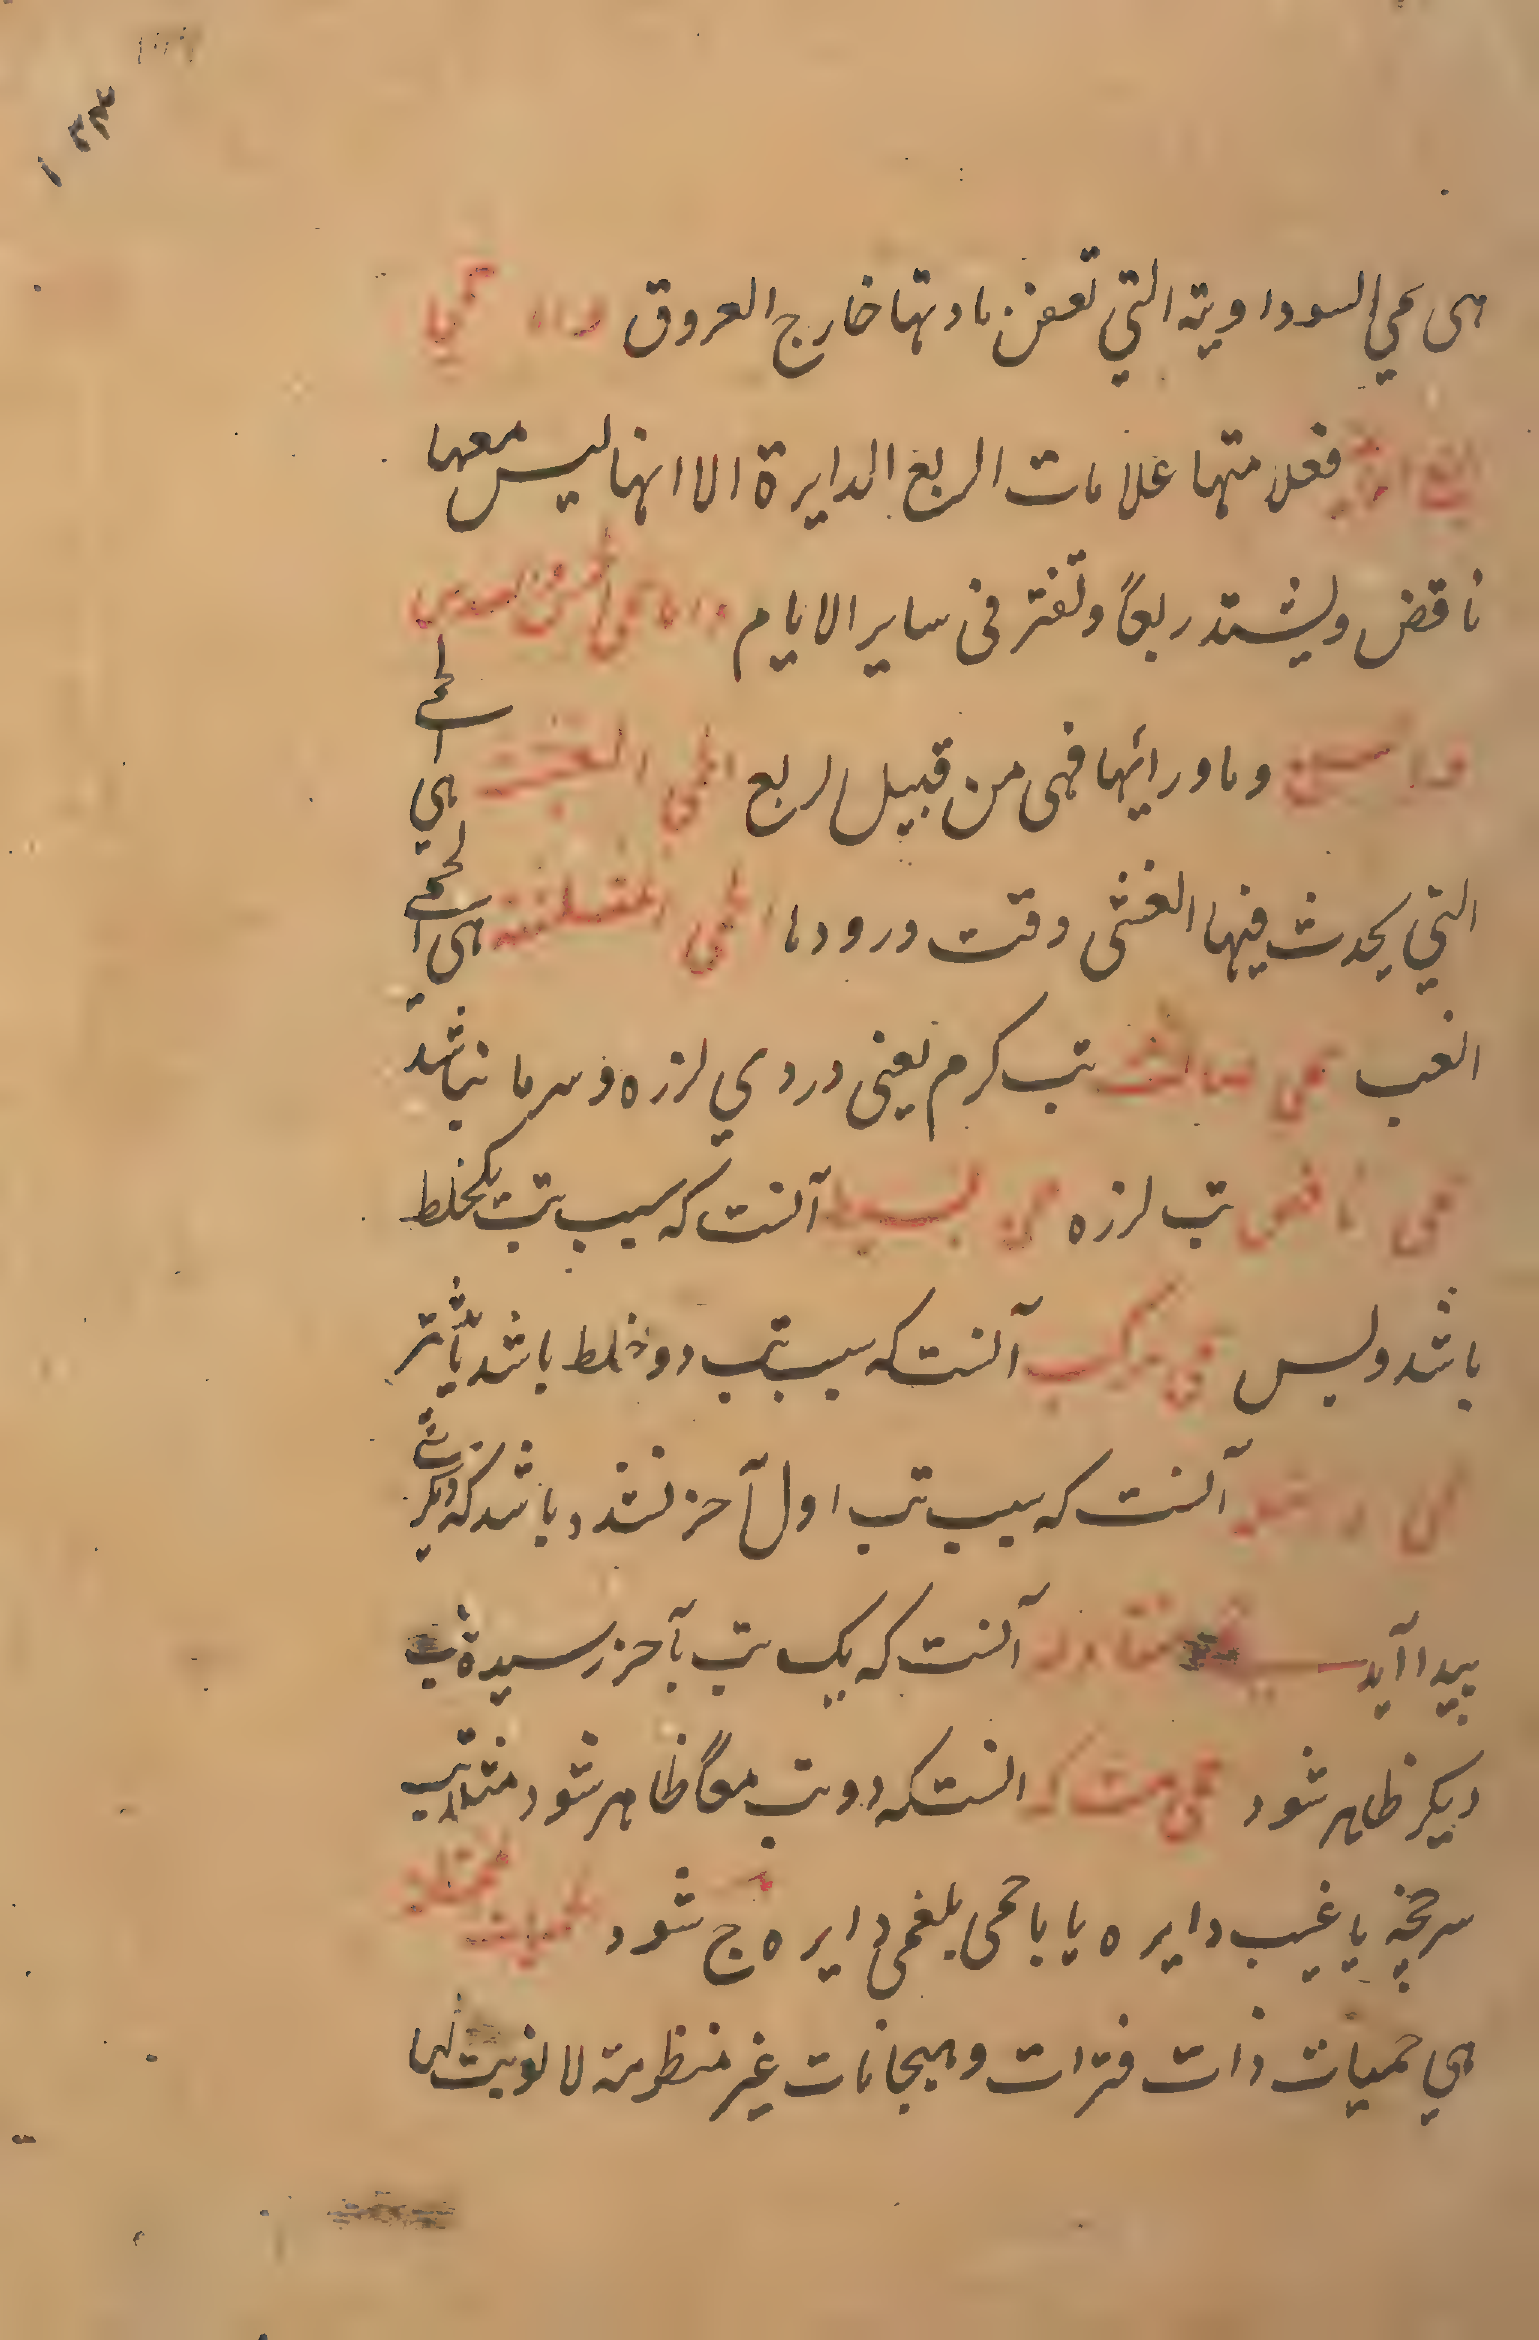 ۱۳۳
هی حمی السوداویة التی تعفن مادتها خارج العروق واما حمی
الربع فعلامتها علامات الربع الدایرة الا انها لیس معها
ناقض ویشتد ربعاً وتفتر فی سایر الایام واما حمی الخمس والسدس
وماورائها فهی من قبیل الربع الحمی الغشیة هی الحمی
التی یحدث فیها الغشی وقت ورودها الحمی هی الحمی
الغب حمی صالب تب کرم یعنی دردی لرزه و سرما نباشد
حمی نافض تب لرزه حمی بسیط آنست که سبب تب یکخلط
باشد وبس حمی مرکب آنست که سبب تب دو خلط باشد
حمی آنست که سبب تب اول آخر نشده باشد که دیگری
پیدا آید آنست که یک تب بآخر رسیدة تب
دیکر ظاهر شود حمی مشترکه انست که دو تب معاً ظاهر شود مثلا تب
سرخچه یا غب دایره یا با حمی بلغمی دایره ج شود حمیات مختلطه
هی حمیات ذات فترات وهیجانات غیر منظومة لا نوبت لها